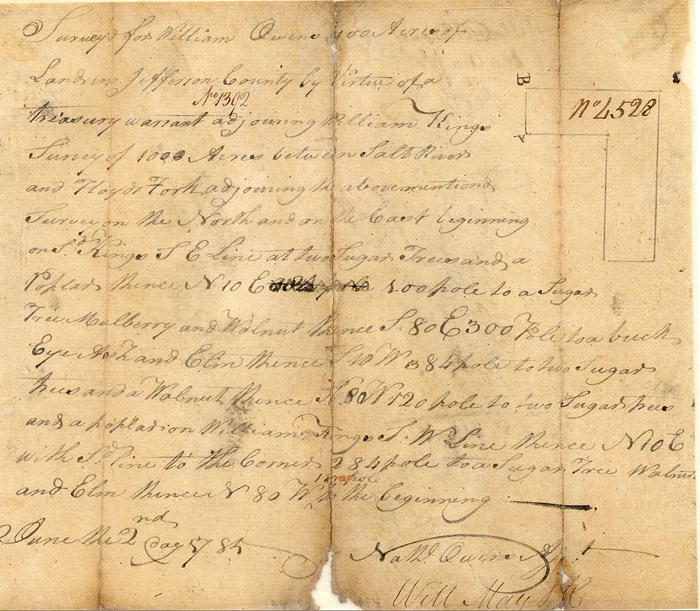 Survey'd for William Owens 400 Acres of
Land in Jefferson County by Virtue of a
No 1302
treasury warrant adjoining William Kings
Survey of 1000 Acres between Salt River
and Floyds Fork adjoining the above mentiond
Survey on the North and on the East beginning
on Sd Kings S E Line at two Sugar Trees and a
Poplar thence N 10 E 100 pole to a Sugar
Tree Mulberry and Walnut thence S 80 E 300 Pole to a buck
Eye Ash and Elm thence S 10 W 384 pole to two Sugar
trees and a Walnut thence N 80 W 120 pole to two Sugar trees
and a poplar on William Kings S. W Line thence N 10 E
with Sd line to the Corner 284 pole to a Sugar Tree Walnut
and Elm thence N 80 W to the beginning
June the 2nd day 1784
Nathl Owens Asst
Will May
No 4528
B